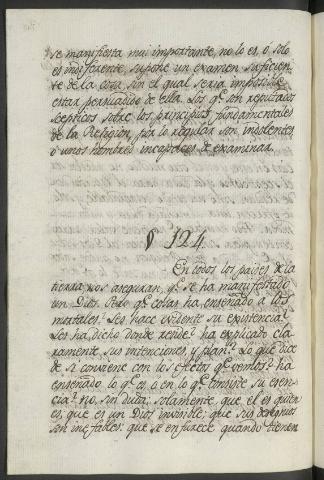 se manifiesta mui importante, no lo es, ó solo
es indiferente, supone un examen suficien-
te de la cosa, sin el qual seria imposible
estar persuadido de ella. Los qe. son reputados
scepticos sobre los principios fundamentales
de la Religion, por lo regular son insolentes
ó unos hombres incapaces de examinar.
§ 124.
En todos los paises de la
tierra nos aseguran, qe. se ha manifestado
un Dios. Pero qe. cosas ha enseñado a los
mortales? Les hace evidente su existencia?
Les ha dicho donde reside? ha explicado cla-
ramente sus intenciones, y plan? Lo que dice
de si conviene con los efectos qe. vemos? ha
enseñado, lo qe. es, ó en lo qe. consiste su esen-
cia? no, sin duda; solamente, que el es quien
es; que es un Dios invisible; que sus designios
son inefables: que se enfurece quando tienen